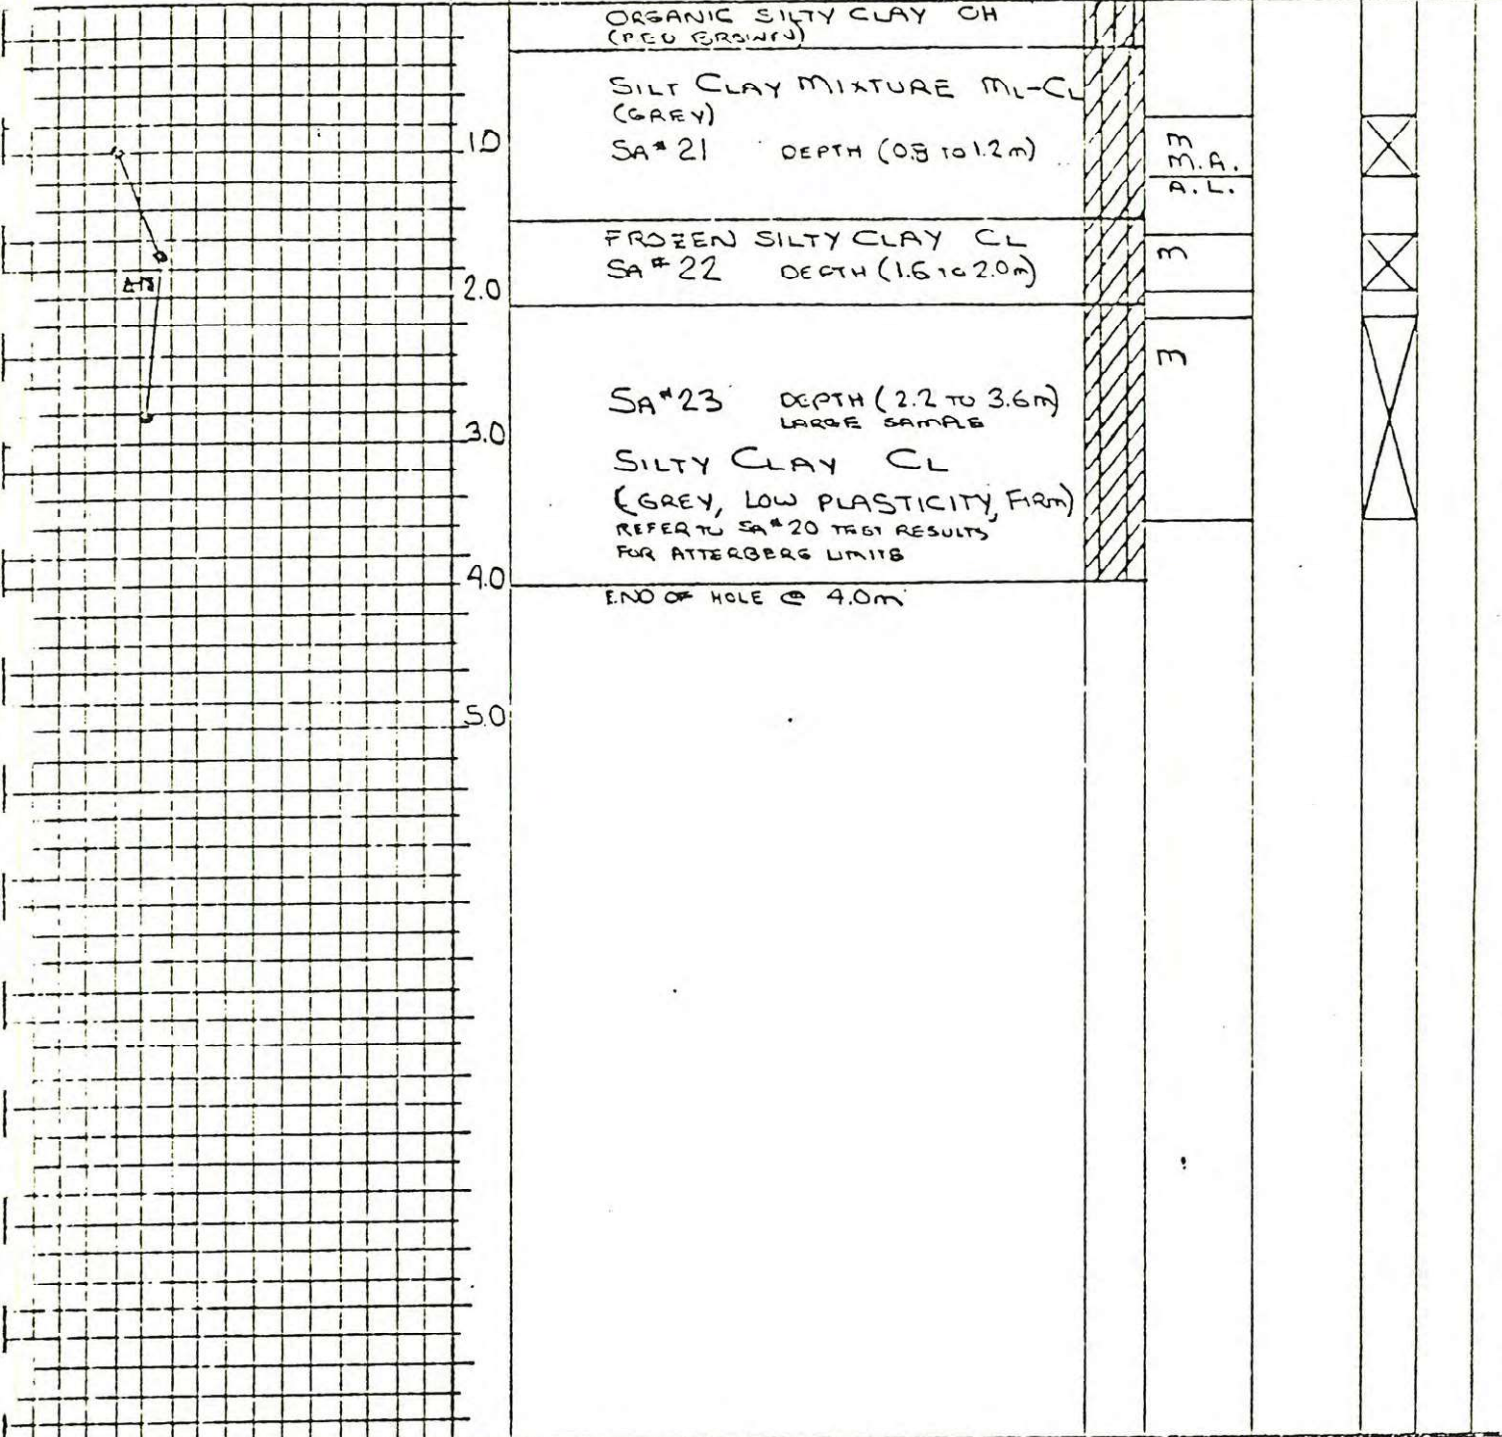 ORGANIC SILTY CLAY OH
(RED BROWN)
SILT CLAY MIXTURE ML-CL
(GREY)
1.0
SA#21 DEPTH (0.8 TO 1.2m)
M
M.A.
A.L.
FROZEN SILTY CLAY CL
SA#22 DEPTH (1.6 TO 2.0m)
M
2.0
M
SA#23 DEPTH (2.2 TO 3.6m)
LARGE SAMPLE
3.0
SILTY CLAY CL
(GREY, LOW PLASTICITY, FIRM)
REFER TO SA#20 TEST RESULTS
FOR ATTERBERG LIMITS
4.0
END OF HOLE @ 4.0m
5.0